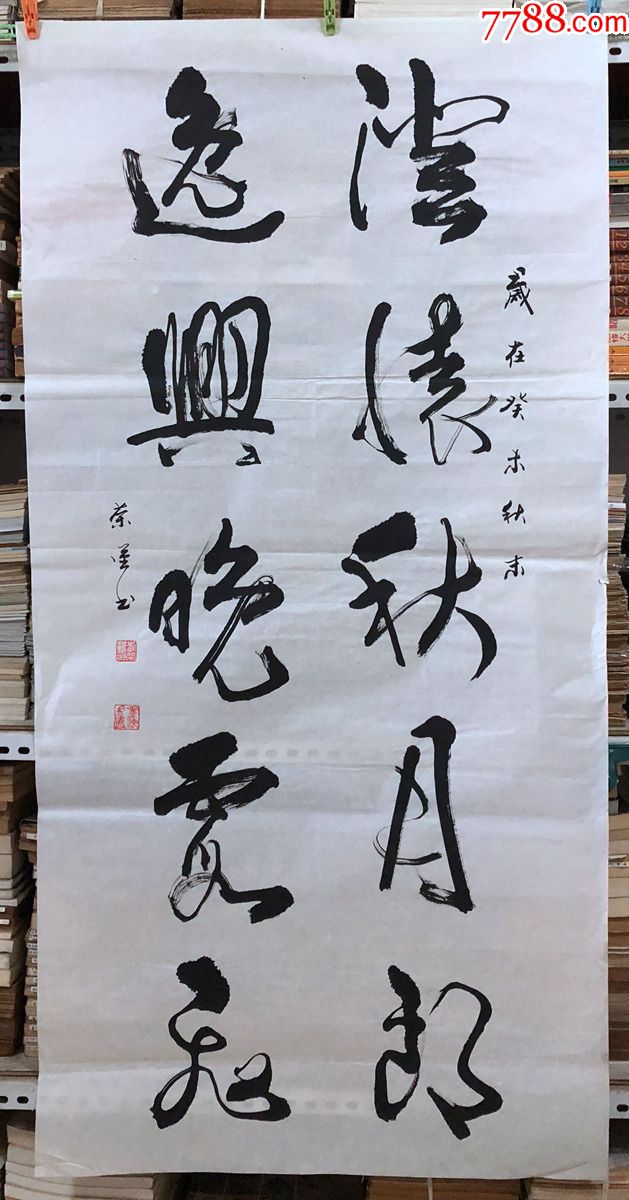 7788.com
歲在癸未秋末
澄懷秋月朗
逸興晚霞飛